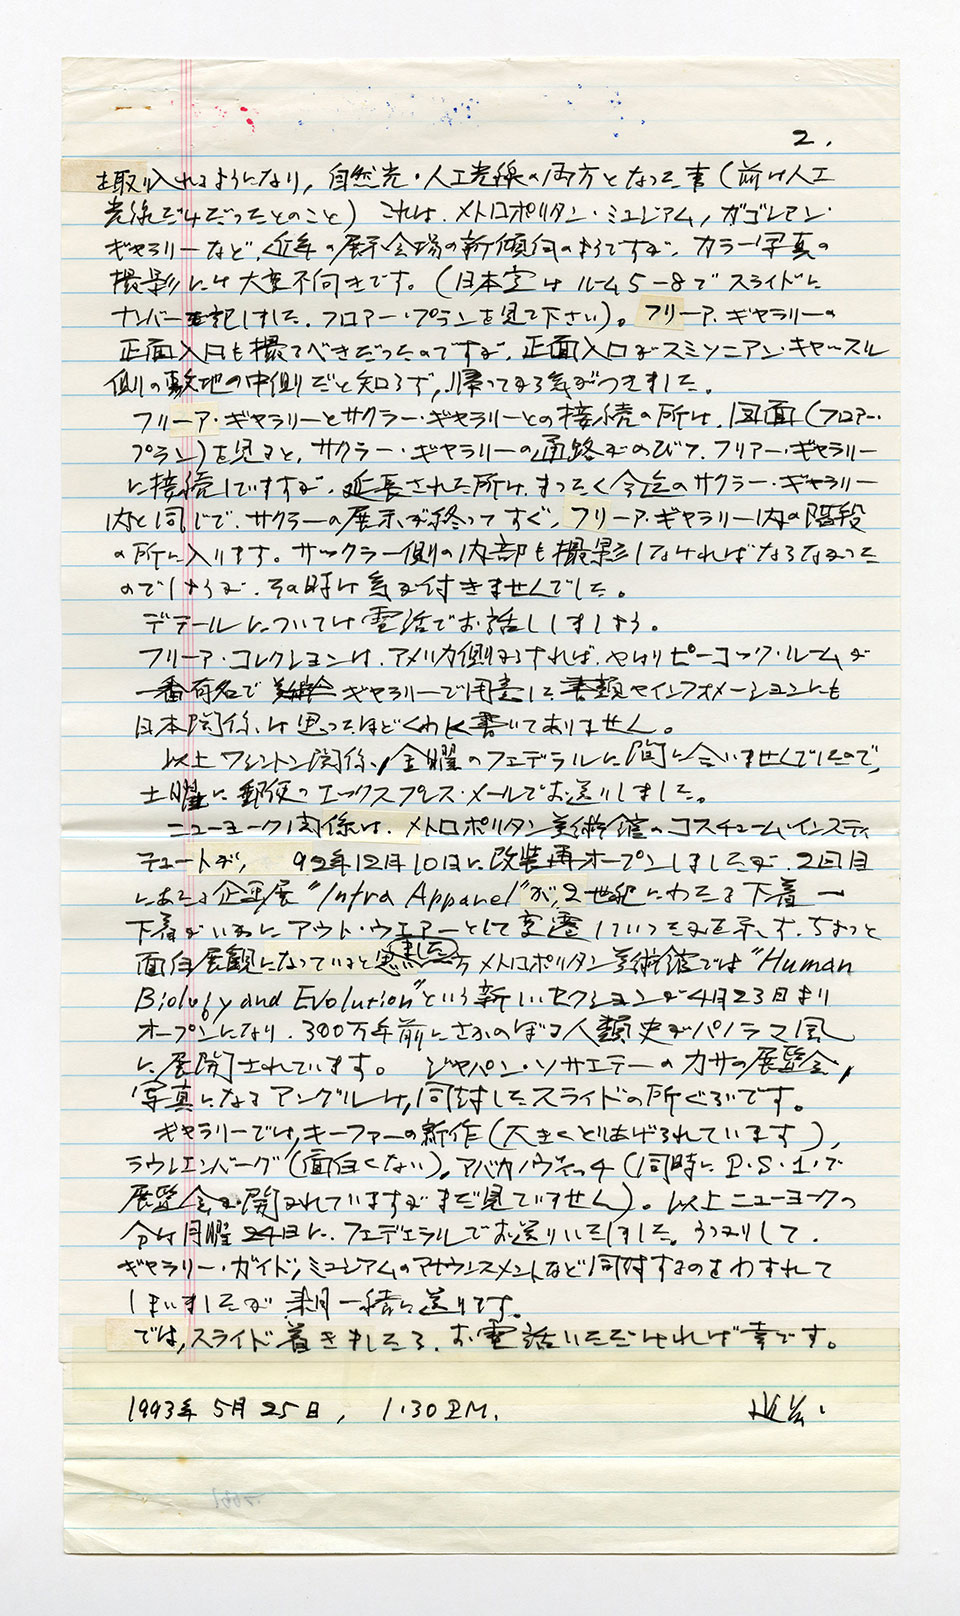 2.
も取り入れるようになり, 自然光・人工光線の両方となった事(前は人工
光線だけだったとのこと) これは、メトロポリタン・ミュジアム, ガゴシアン・
ギャラリーなど、近年の展示会場の新傾向のようですが、カラー写真の
撮影には大変不向きです。(日本室はルーム5-8でスライドに
ナンバー 記しました、フロアー・プランを見て下さい)。フリーア・ギャラリーの
正面入口も撮るべきだったのですが、正面入口がスミソニアン・キャッスル
側の敷地の中側だと知らず, 帰ってから気がつきました。
フリーア・ギャラリーとサクラー・ギャラリーとの接続の所は、図面(フロアー・
プラン)を見ると、サクラー・ギャラリーの通路がのびて、フリアー・ギャラリー
に接続してですが、延長された所は、まったく今迄のサクラー・ギャラリー
内と同じで、サクラーの展示が終ってすぐ、フリーア・ギャラリー内の階段
の所に入ります。サックラー側の内部も撮影しなければならなかった
のでしょうが、その時は気が付きませんでした。
デテールについては電話でお話ししましょう。
フリーア・コレクションは、アメリカ側からすれば、やはりピーコック・ルームが
一番有名で ギャラリーで用意した書類やインフォメーションにも
日本関係は思ったほどくわしく書いてありません。
以上ワシントン関係, 金曜のフェデラルに間に合いませんでしたので,
土曜に郵便のエックスプレス・メールでお送りしました。
ニューヨーク関係は、メトロポリタン美術館のコスチューム・インスティ
テュートが, 92年12月10日に改装再オープンしましたが、2回目
にあたる企画展"Infra Apparel"が, 2世紀にわたる下着―
下着がいかにアウト・ウエアーとして変遷していったかを示す、ちょっと
面白展観になっていると思 ました 方メトロポリタン美術館では"Human
Biology and Evolution"という新しいセクションが4月23日より
オープンになり、300万年前にさかのぼる人類史がパノラマ風
に展開されています。 ジャパン・ソサエテーのカサの展覧会,
写真になるアングルは, 同封したスライドの所ぐらいです。
ギャラリーでは, キーファーの新作(大きくとりあげられています),
ラウシエンバーグ(面白くない)。アバカノヴィッチ(同時にP・S・1・で
展覧会が開かれていますがまだ見ていません)。以上ニューヨークの
分は月曜24日に、フェデェラルでお送りいたしました。うっかりして、
ギャラリー・ガイド, ミュジアムのアナウンスメントなど同封するのをわすれて
しまいましたが 来月一緒に送ります。
では, スライド着きましたら、お電話いただければ幸です。
1993年5月25日, 1:30 P.M.